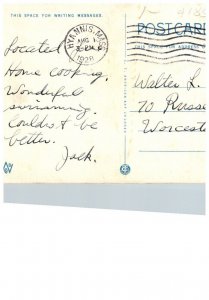 THIS SPACE FOR WRITING MESSAGES
POSTCAR
HYANNIS, MASS.
AUG 1
1928
Located
Home cooking.
Wonderful
swimming.
Couldn't be
better.
Jack.
Walter L.
70 Russe
Worcest